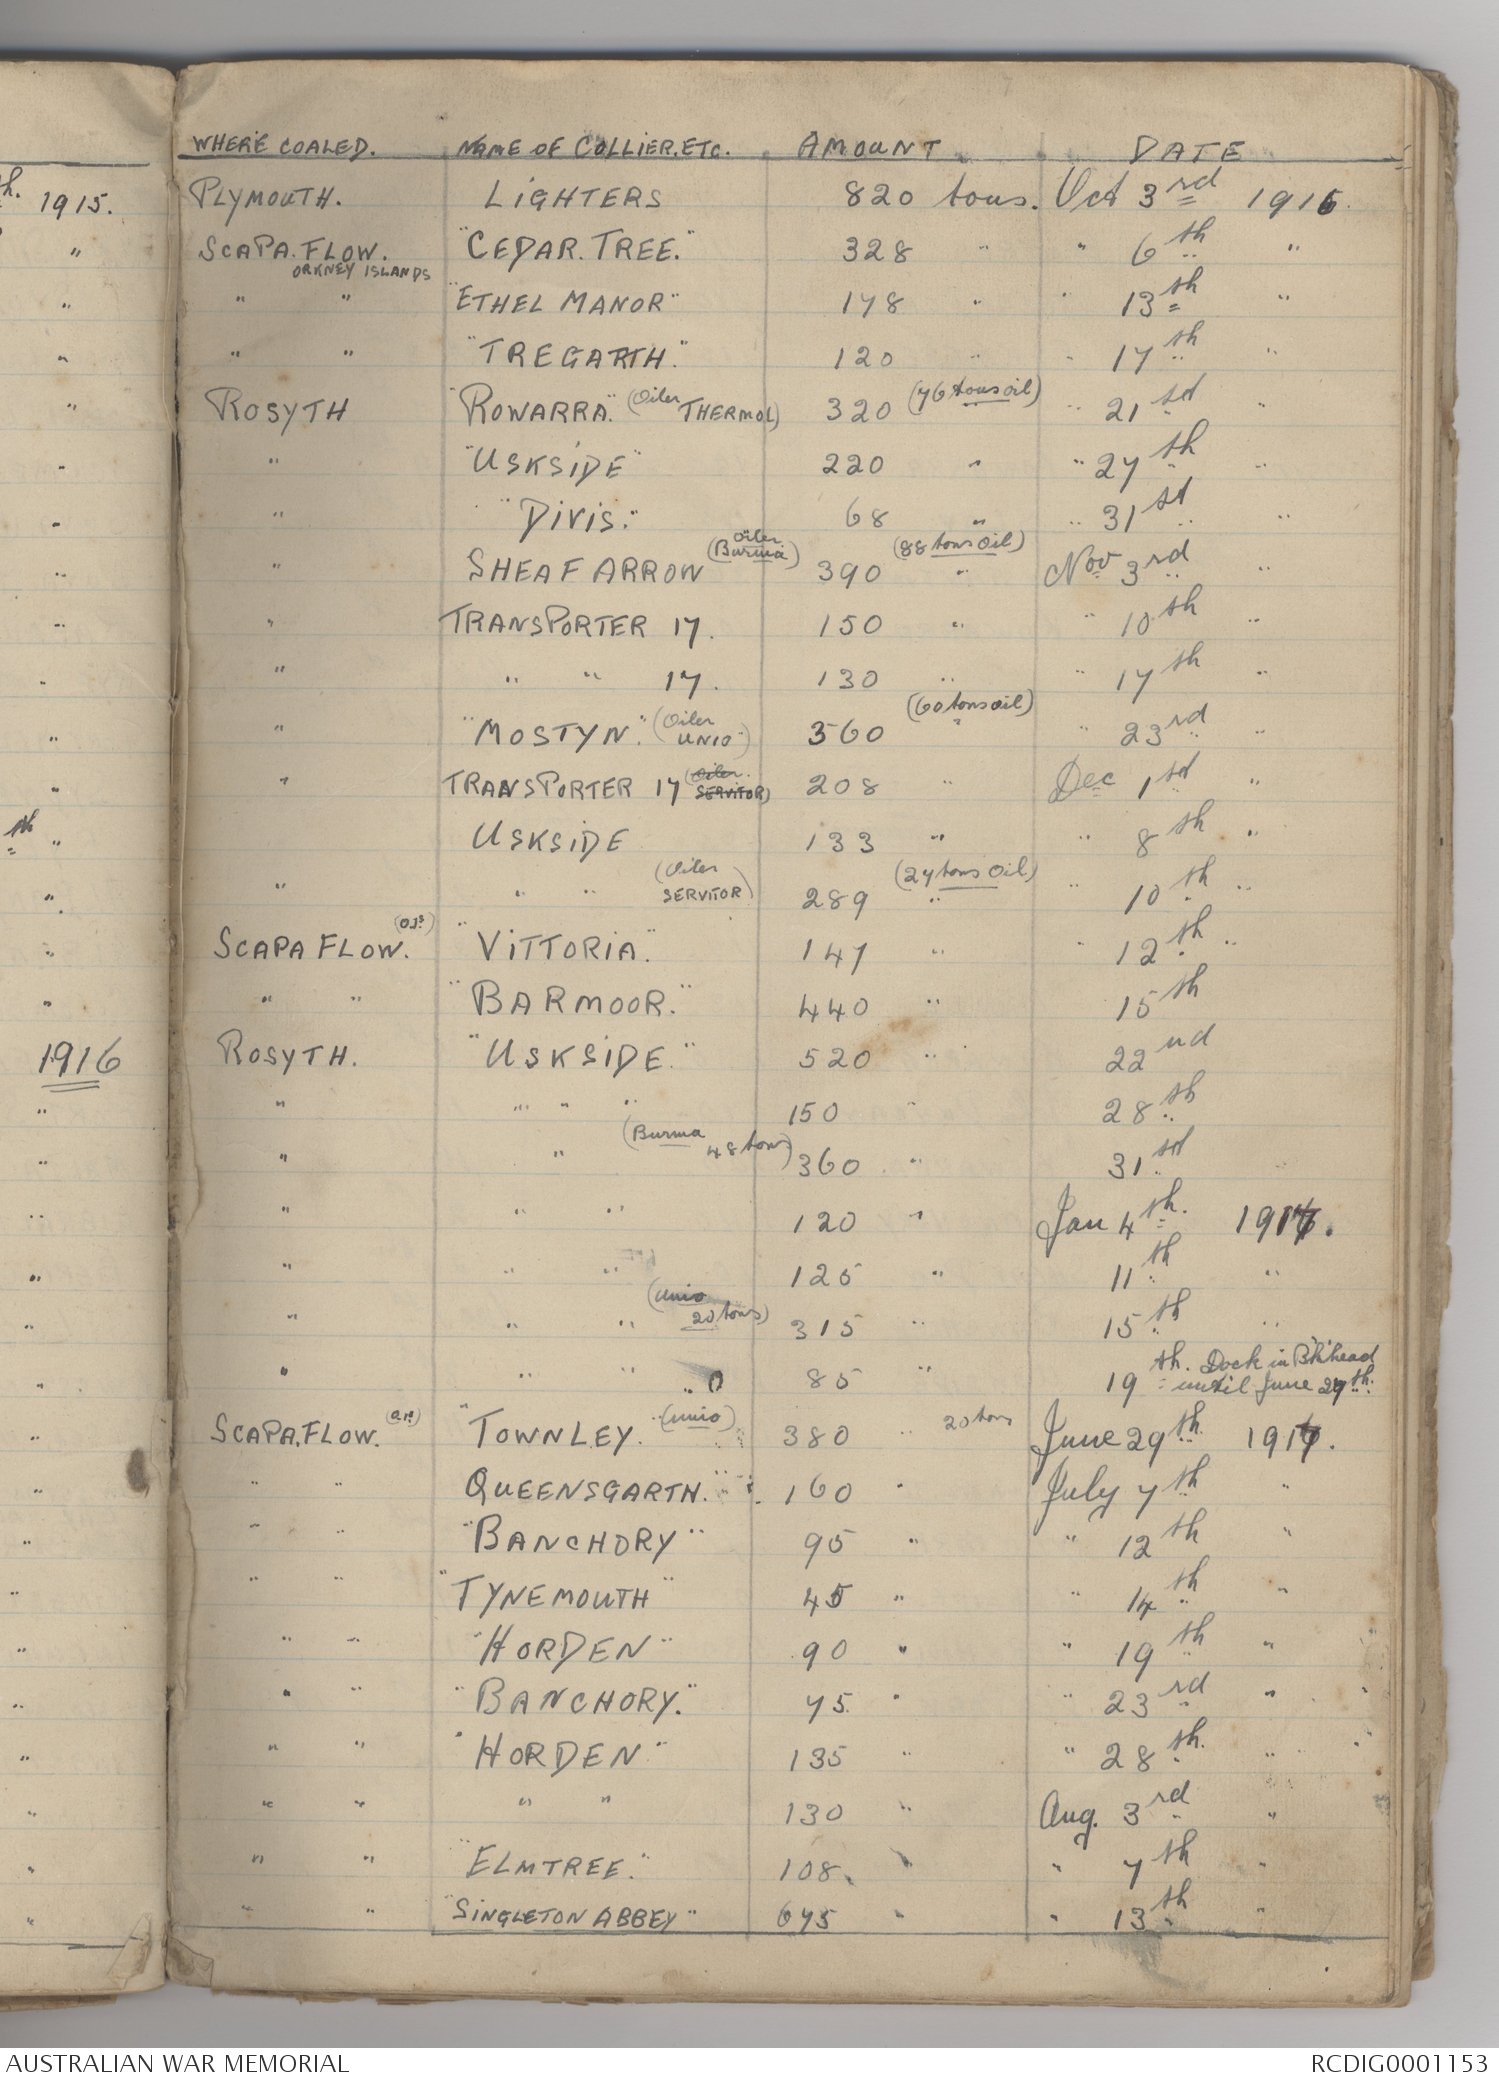 WHERE COALED. NAME OF COLLIER, ETC. AMOUNT DATE
th. 1915. PLYMOUTH. LIGHTERS 820 tons. Oct 3rd 1916.
" SCAPA. FLOW. "CEDAR. TREE." 328 " " 6th "
ORKNEY ISLANDS
" " " "ETHEL MANOR" 178 " " 13th "
" " " "TREGARTH." 120 " " 17th "
" ROSYTH "ROWARRA." (Oiler THERMOL) 320 (76 tons oil) " " 21st "
" " "USKSIDE" 220 " " 27th "
" " "DIVIS." 68 " " 31st "
" " SHEAF ARROW (Oiler Burma) 390 (88 tons oil) " Nov 3rd "
" " TRANSPORTER 17. 150 " " 10th "
" " " " 17. 130 " " 17th "
" " "MOSTYN." (Oiler UNIO") 360 (60 tons oil) " " 23rd "
" " TRANSPORTER 17 (Oiler SERVITOR) 208 " Dec 1st "
th " USKSIDE 133 " " 8th "
" " " " (Oiler SERVITOR) 289 (27 tons oil) " " 10th "
" SCAPA FLOW. (O.Is) "VITTORIA." 147 " " 12th "
" " " "BARMOOR." 440 " 15th
1916 ROSYTH. "USKSIDE." 520 " 22nd
" " " " " 150 " 28th
" " " (Burma 48 tons) 360 " 31st
" " " " 120 " Jan 4th. 1917.
" " " " 125 " 11th "
" " " " (Unio 20 tons) 315 " 15th "
" " " " " 0 85 " 19th. Dock in B'k'head
until June 27th.
" SCAPA. FLOW. (O.Is) "TOWNLEY. " (Unio) 380 " 20 tons June 29th 1917.
" " " QUEENSGARTH." 160 " July 7th "
" " " "BANCHORY" 95 " " 12th "
" " " "TYNEMOUTH" 45 " " 14th "
" " " "HORDEN" 90 " " 19th "
" " " "BANCHORY." 75. " " 23rd "
" " " "HORDEN" 135 " " 28th. "
" " " " " 130 " Aug. 3rd "
" " " "ELMTREE." 108. " " 7th "
" " " "SINGLETON ABBEY" 675 " " 13th "
AUSTRALIAN WAR MEMORIAL RCDIG0001153